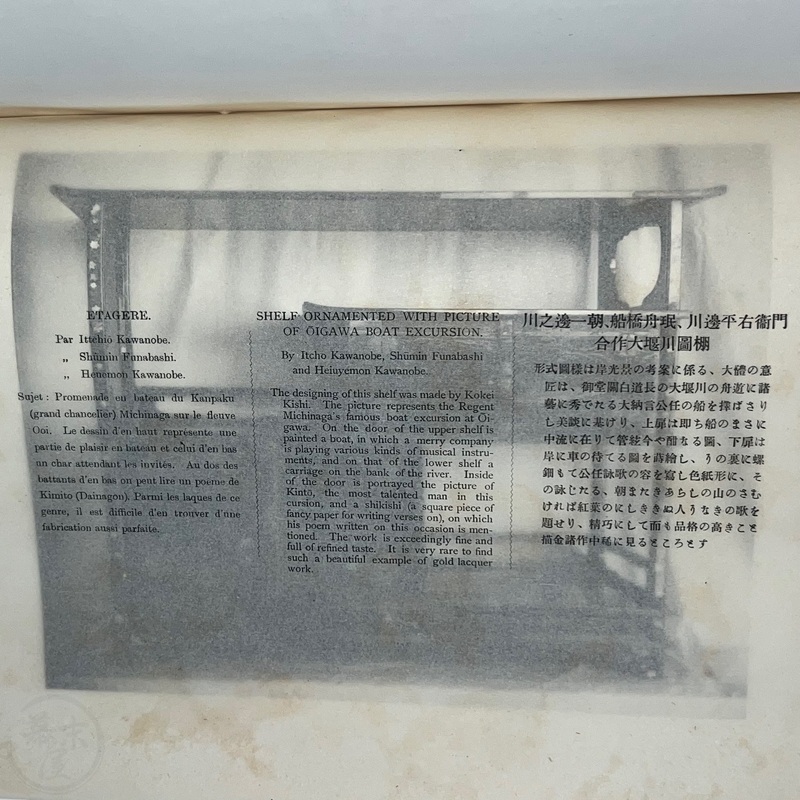 ETAGERE.
Par Ittchiō Kawanobe.
„ Shūmin Funabashi.
„ Heuemon Kawanobe.
Sujet : Promenade en bateau du Kanpaku
(grand chancelier) Michinaga sur le fleuve
Ooi. Le dessin d'en haut représente une
partie de plaisir en bateau et celui d'en bas
un char attendant les invités. Au dos des
battants d'en bas on peut lire un poème de
Kimito (Dainagon). Parmi les laques de ce
genre, il est difficile d'en trouver d'une
fabrication aussi parfaite.
SHELF ORNAMENTED WITH PICTURE
OF ŌIGAWA BOAT EXCURSION.
By Itcho Kawanobe, Shūmin Funabashi
and Heiuyemon Kawanobe.
The designing of this shelf was made by Kokei
Kishi. The picture represents the Regent
Michinaga's famous boat excursion at Ōi-
gawa. On the door of the upper shelf is
painted a boat, in which a merry company
is playing various kinds of musical instru-
ments, and on that of the lower shelf a
carriage on the bank of the river. Inside
of the door is portrayed the picture of
Kintō, the most talented man in this
cursion, and a shikishi (a square piece of
fancy paper for writing verses on), on which
his poem written on this occasion is men-
tioned. The work is exceedingly fine and
full of refined taste. It is very rare to find
such a beautiful example of gold lacquer
work.
川之邊一朝、船橋舟珉、川邊平右衞門
合作大堰川圖棚
形式圖樣は岸光景の考案に係る、大體の意
匠は、御堂關白道長の大堰川の舟遊に諸
藝に秀でたる大納言公任の船を擇ばさり
し美談に基けり、上扉は即ち船のまさに
中流に在りて管絃今や酣なる圖、下扉は
岸に車の待てる圖を蒔繪し、うの裏に螺
鈿もて公任詠歌の容を寫し色紙形に、そ
の詠じたる、朝まだきあらしの山のさむ
ければ紅葉のにしききぬ人うなきの歌を
題せり、精巧にして面も品格の高きこと
描金諸作中稀に見るところとす